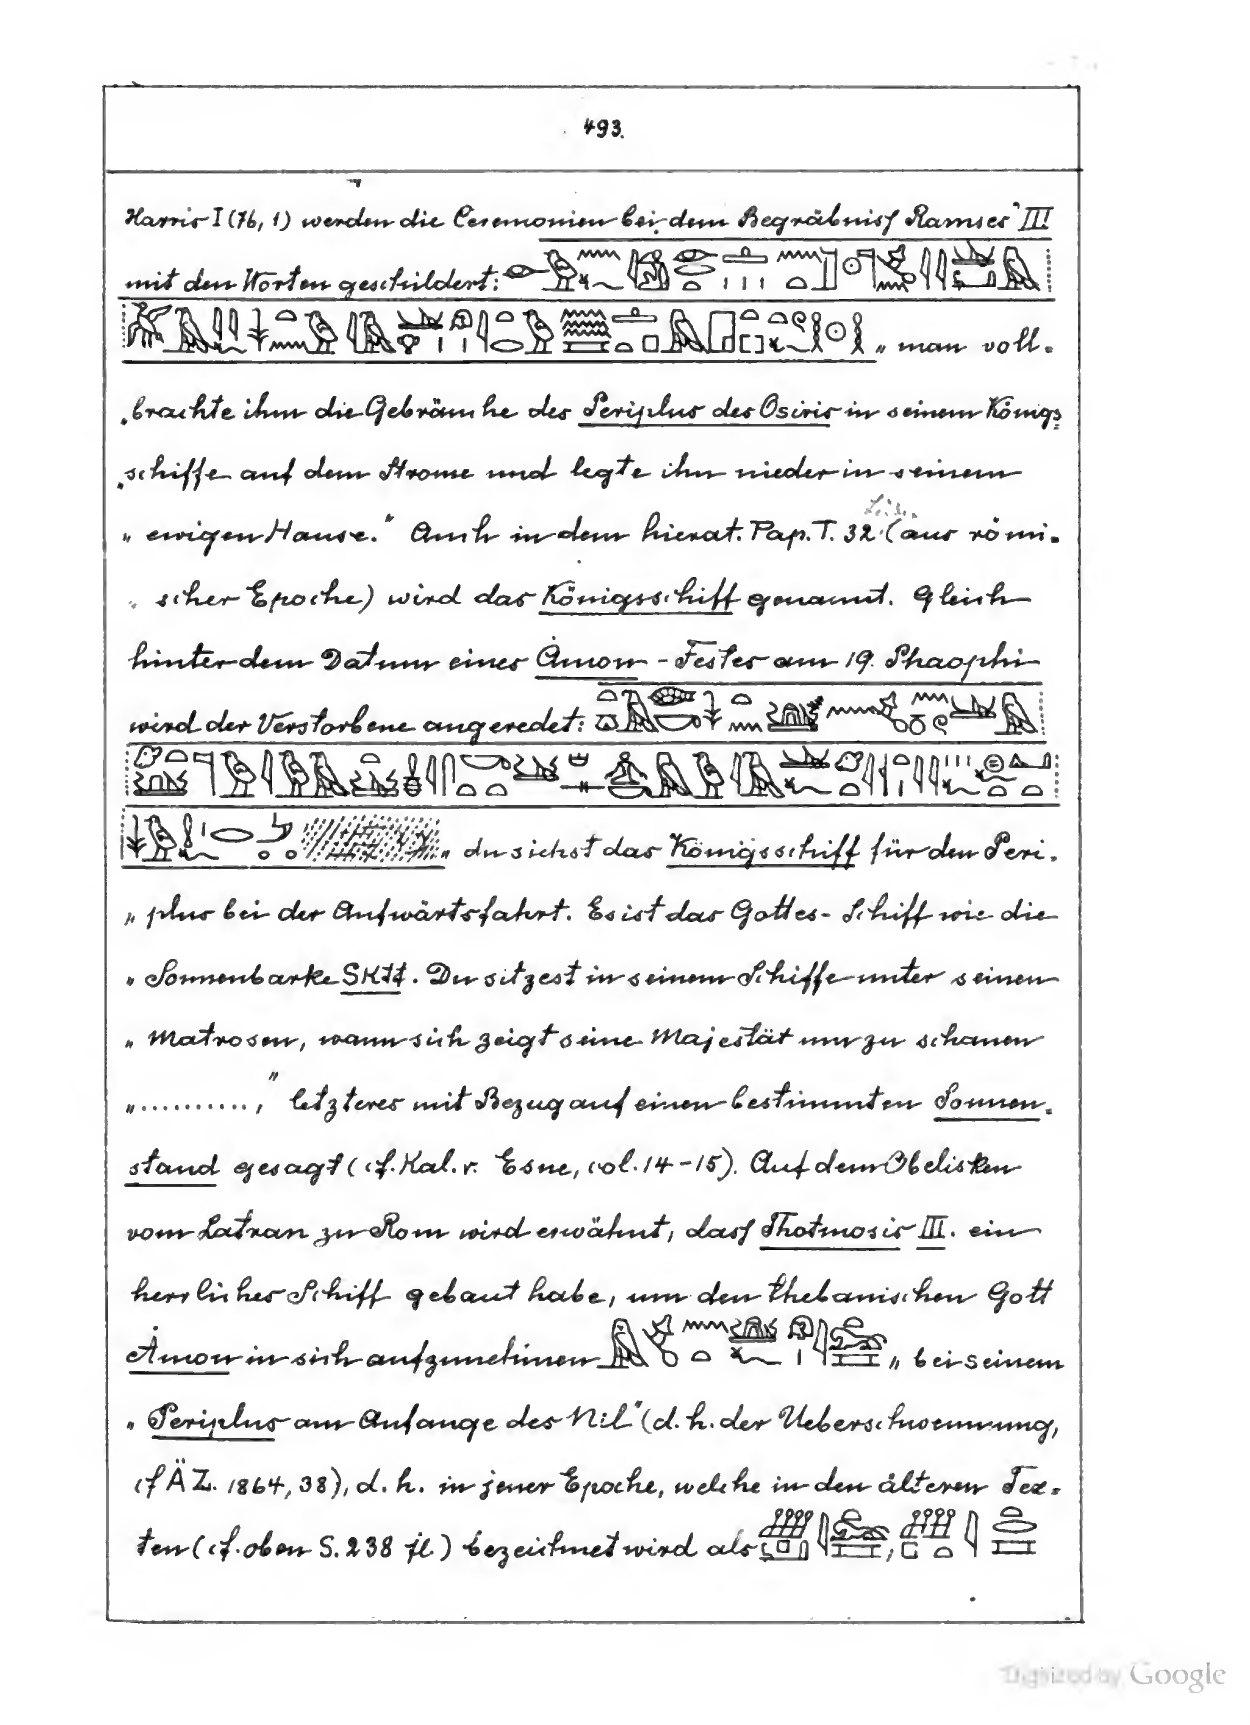 493.
Harris I (76, 1) werden die Ceremonien bei dem Begräbniss Ramses' III
mit den Worten geschildert:
„ man voll-
„brachte ihm die Gebräuche des Periplus des Osiris in seinem Königs-
„schiffe auf dem Strome und legte ihn nieder in seinem
„ ewigen Hause." Auch in dem hierat. Pap. T. 32 (aus römi-
scher Epoche) wird das Königsschiff genannt. Gleich
hinter dem Datum eines Amon-Festes am 19. Phaophi
wird der Verstorbene angeredet:
„ du siehst das Königsschiff für den Peri-
„ plus bei der Aufwärtsfahrt. Es ist das Gottes-Schiff wie die
„ Sonnenbarke SKTT. Du sitzest in seinem Schiffe unter seinen
„ Matrosen, wann sich zeigt seine Majestät um zu schauen
„..........," letzteres mit Bezug auf einen bestimmten Sonnen-
stand gesagt (cf. Kal. v. Esne, col. 14-15). Auf dem Obelisken
vom Latran zu Rom wird erwähnt, dass Thotmosis III. ein
herrliches Schiff gebaut habe, um den thebanischen Gott
Åmon in sich aufzunehmen „ bei seinem
„ Periplus am Anfange des Nil" (d. h. der Ueberschwemmung,
cf ÄZ. 1864, 38), d. h. in jener Epoche, welche in den älteren Tex-
ten (cf. oben S. 238 fl.) bezeichnet wird als
Digitized by Google